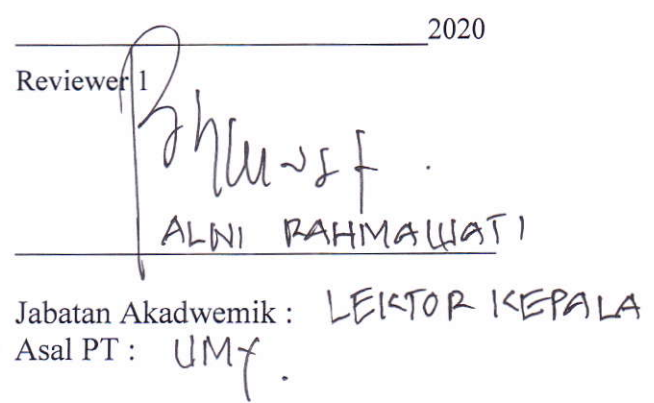 2020
Reviewer 1
ALNI RAHMAWATI
Jabatan Akadwemik : LEKTOR KEPALA
Asal PT : UMY.